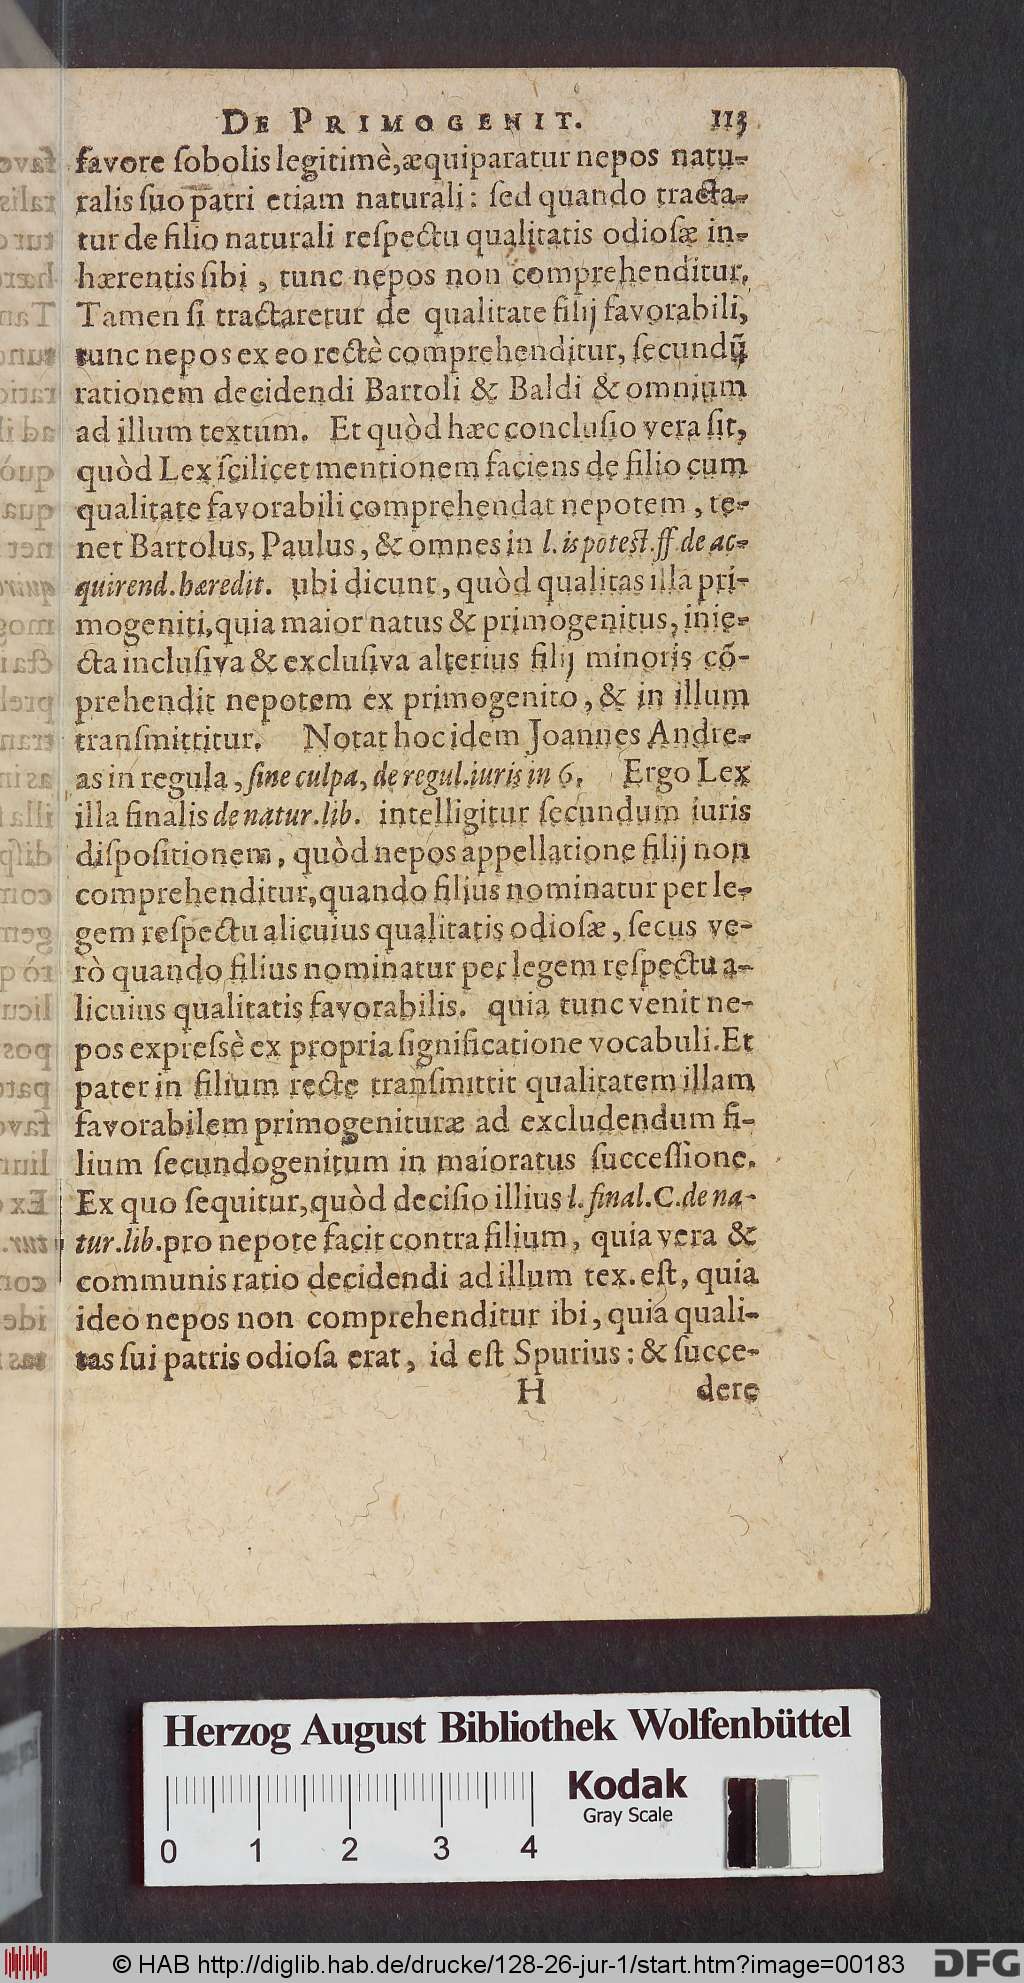 DE PRIMOGENIT. 113
favore ſobolis legitimè, æquiparatur nepos natu-
ralis ſuo patri etiam naturali: ſed quando tracta-
tur de filio naturali reſpectu qualitatis odioſæ in-
hærentis ſibi, tunc nepos non comprehenditur.
Tamen ſi tractaretur de qualitate filij favorabili,
tunc nepos ex eo rectè comprehenditur, ſecundū
rationem decidendi Bartoli & Baldi & omnium
ad illum textum. Et quòd hæc concluſio vera ſit,
quòd Lex ſcilicet mentionem faciens de filio cum
qualitate favorabili comprehendat nepotem, te-
net Bartolus, Paulus, & omnes in l. is poteſt. ff. de ac-
quirend. hæredit. ubi dicunt, quòd qualitas illa pri-
mogeniti, quia maior natus & primogenitus, inie-
cta incluſiva & excluſiva alterius filij minoris cō-
prehendit nepotem ex primogenito, & in illum
tranſmittitur. Notat hoc idem Joannes Andre-
as in regula, ſine culpa, de regul. iuris in 6. Ergo Lex
illa finalis de natur. lib. intelligitur ſecundum iuris
diſpoſitionem, quòd nepos appellatione filij non
comprehenditur, quando filius nominatur per le-
gem reſpectu alicuius qualitatis odioſæ, ſecus ve-
rò quando filius nominatur per legem reſpectu a-
licuius qualitatis favorabilis. quia tunc venit ne-
pos expreſsè ex propria ſignificatione vocabuli. Et
pater in filium recte tranſmittit qualitatem illam
favorabilem primogenituræ ad excludendum fi-
lium ſecundogenitum in maioratus ſucceſſione.
Ex quo ſequitur, quòd deciſio illius l. final. C. de na-
tur. lib. pro nepote facit contra filium, quia vera &
communis ratio decidendi ad illum tex. eſt, quia
ideo nepos non comprehenditur ibi, quia quali-
tas ſui patris odioſa erat, id eſt Spurius: & ſucce-
H dere
Herzog August Bibliothek Wolfenbüttel
Kodak
Gray Scale
0 1 2 3 4
© HAB http://diglib.hab.de/drucke/128-26-jur-1/start.htm?image=00183
DFG